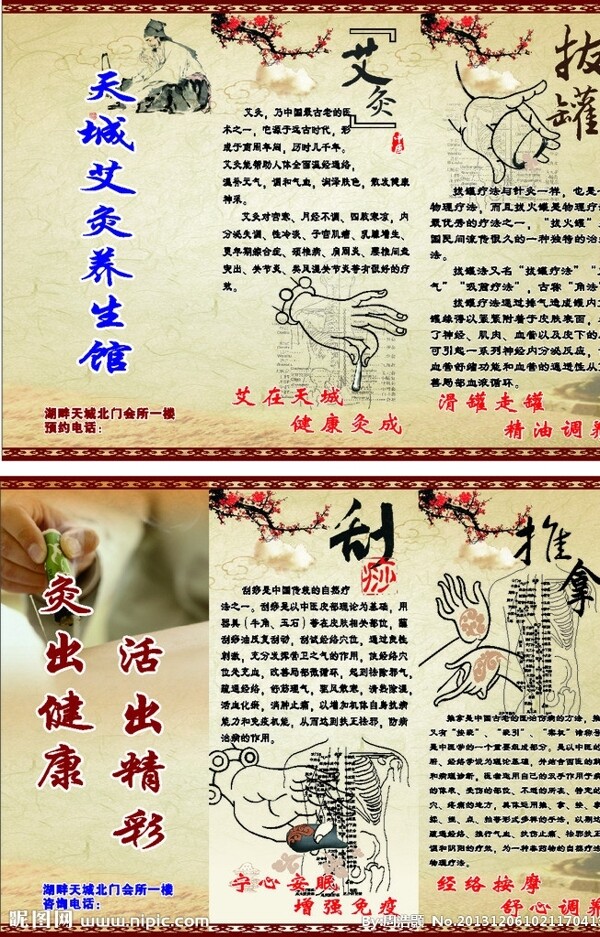 天城艾灸养生馆
湖畔天城北门会所一楼
预约电话：
『艾灸』
艾灸，乃中国最古老的医
术之一，它源于远古时代，形
成于商周年间，历时几千年。
艾灸能帮助人体全面温经通络，
温补元气，调和气血，润泽肤色，散发健康
神采。
艾灸对宫寒、月经不调、四肢寒凉，内
分泌失调、性冷淡、子宫肌瘤、乳腺增生、
更年期综合症、颈椎病、肩周炎、腰椎间盘
突出、关节炎、类风湿关节炎等有很好的疗
效。
艾在天城
健康灸成
拔罐
拔罐疗法与针灸一样，也是一
物理疗法，而且拔火罐是物理疗法
最优秀的疗法之一，“拔火罐”
国民间流传很久的一种独特的治
法。
拔罐法又名“拔罐疗法”
气”“吸筒疗法”，古称“角法
拔罐疗法通过排气造成罐内
罐缘得以紧紧附着于皮肤表面，
了神经、肌肉、血管以及皮下的
可引起一系列神经内分泌反应，
血管舒缩功能和血管的通透性从
善局部血液循环。
滑罐走罐
精油调养
灸出健康
活出精彩
湖畔天城北门会所一楼
咨询电话：
刮痧
刮痧是中国传统的自然疗
法之一。刮痧是以中医皮部理论为基础，用
器具（牛角、玉石）等在皮肤相关部位，蘸
刮痧油反复刮动，刮拭经络穴位，通过良性
刺激，充分发挥营卫之气的作用，使经络穴
位处充血，改善局部微循环，起到祛除邪气，
疏通经络，舒筋理气，驱风散寒，清热除湿，
活血化瘀，消肿止痛，以增加机体自身抗病
能力和免疫机能，从而达到扶正祛邪，防病
治病的作用。
宁心安眠
增强免疫
推拿
推拿是中国古老的医治伤病的方法，
又有“按跷”、“跷引”、“案杌”诸称
是中医学的一个重要组成部分。是以中医的
腑、经络学说为理论基础，并结合西医的
和病理诊断，医者运用自己的双手作用于病
的体表、受伤的部位、不适的所在、特定的
穴、疼痛的地方，具体运用推、拿、按、
揉、捏、点、拍等形式多样的手法，以期达
疏通经络、推行气血、扶伤止痛、祛邪扶正
调和阴阳的疗效，为一种非药物的自然疗法
物理疗法。
经络按摩
舒心调养
昵图网 www.nipic.com
By:周浩歌 No.20131206102117041